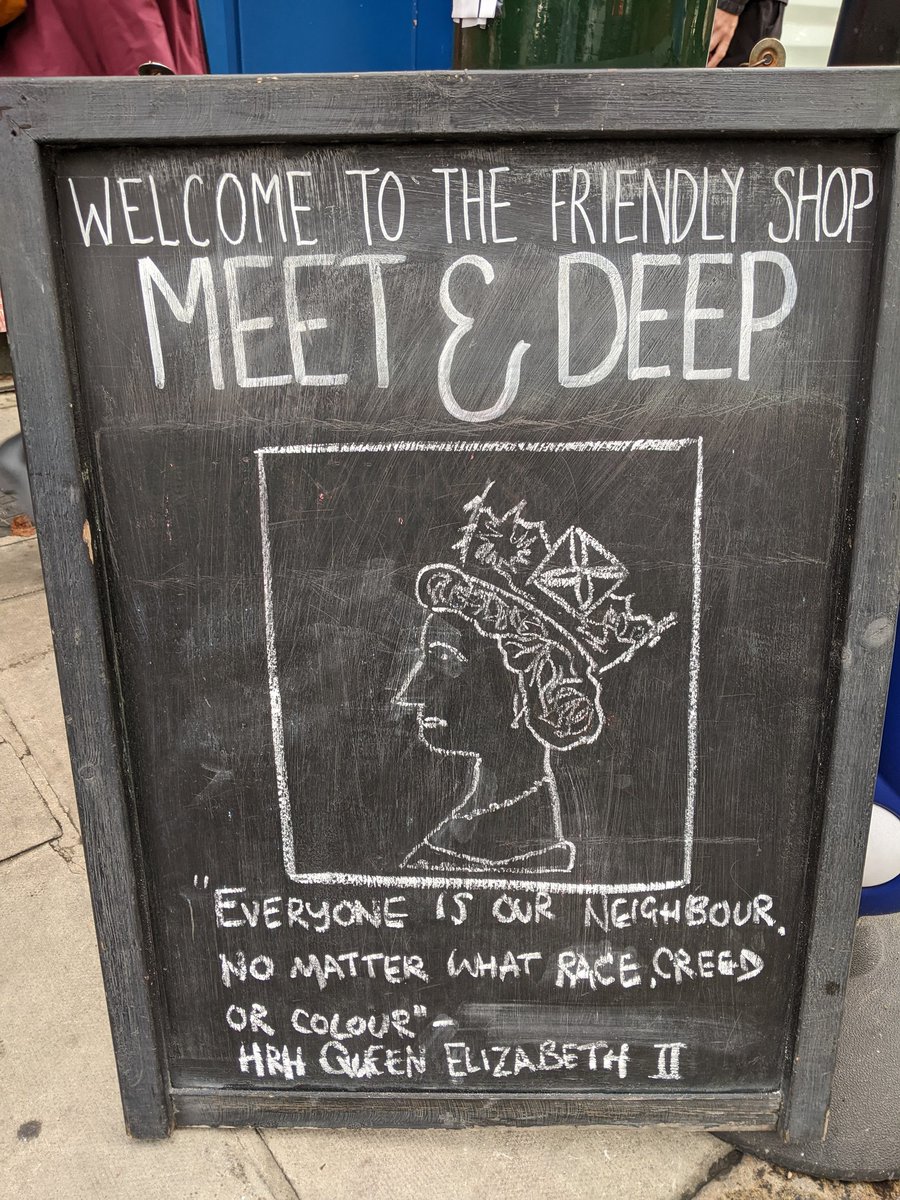 WELCOME TO THE FRIENDLY SHOP
MEET & DEEP
"EVERYONE IS OUR NEIGHBOUR,
NO MATTER WHAT RACE, CREED
OR COLOUR" -
HRH QUEEN ELIZABETH II